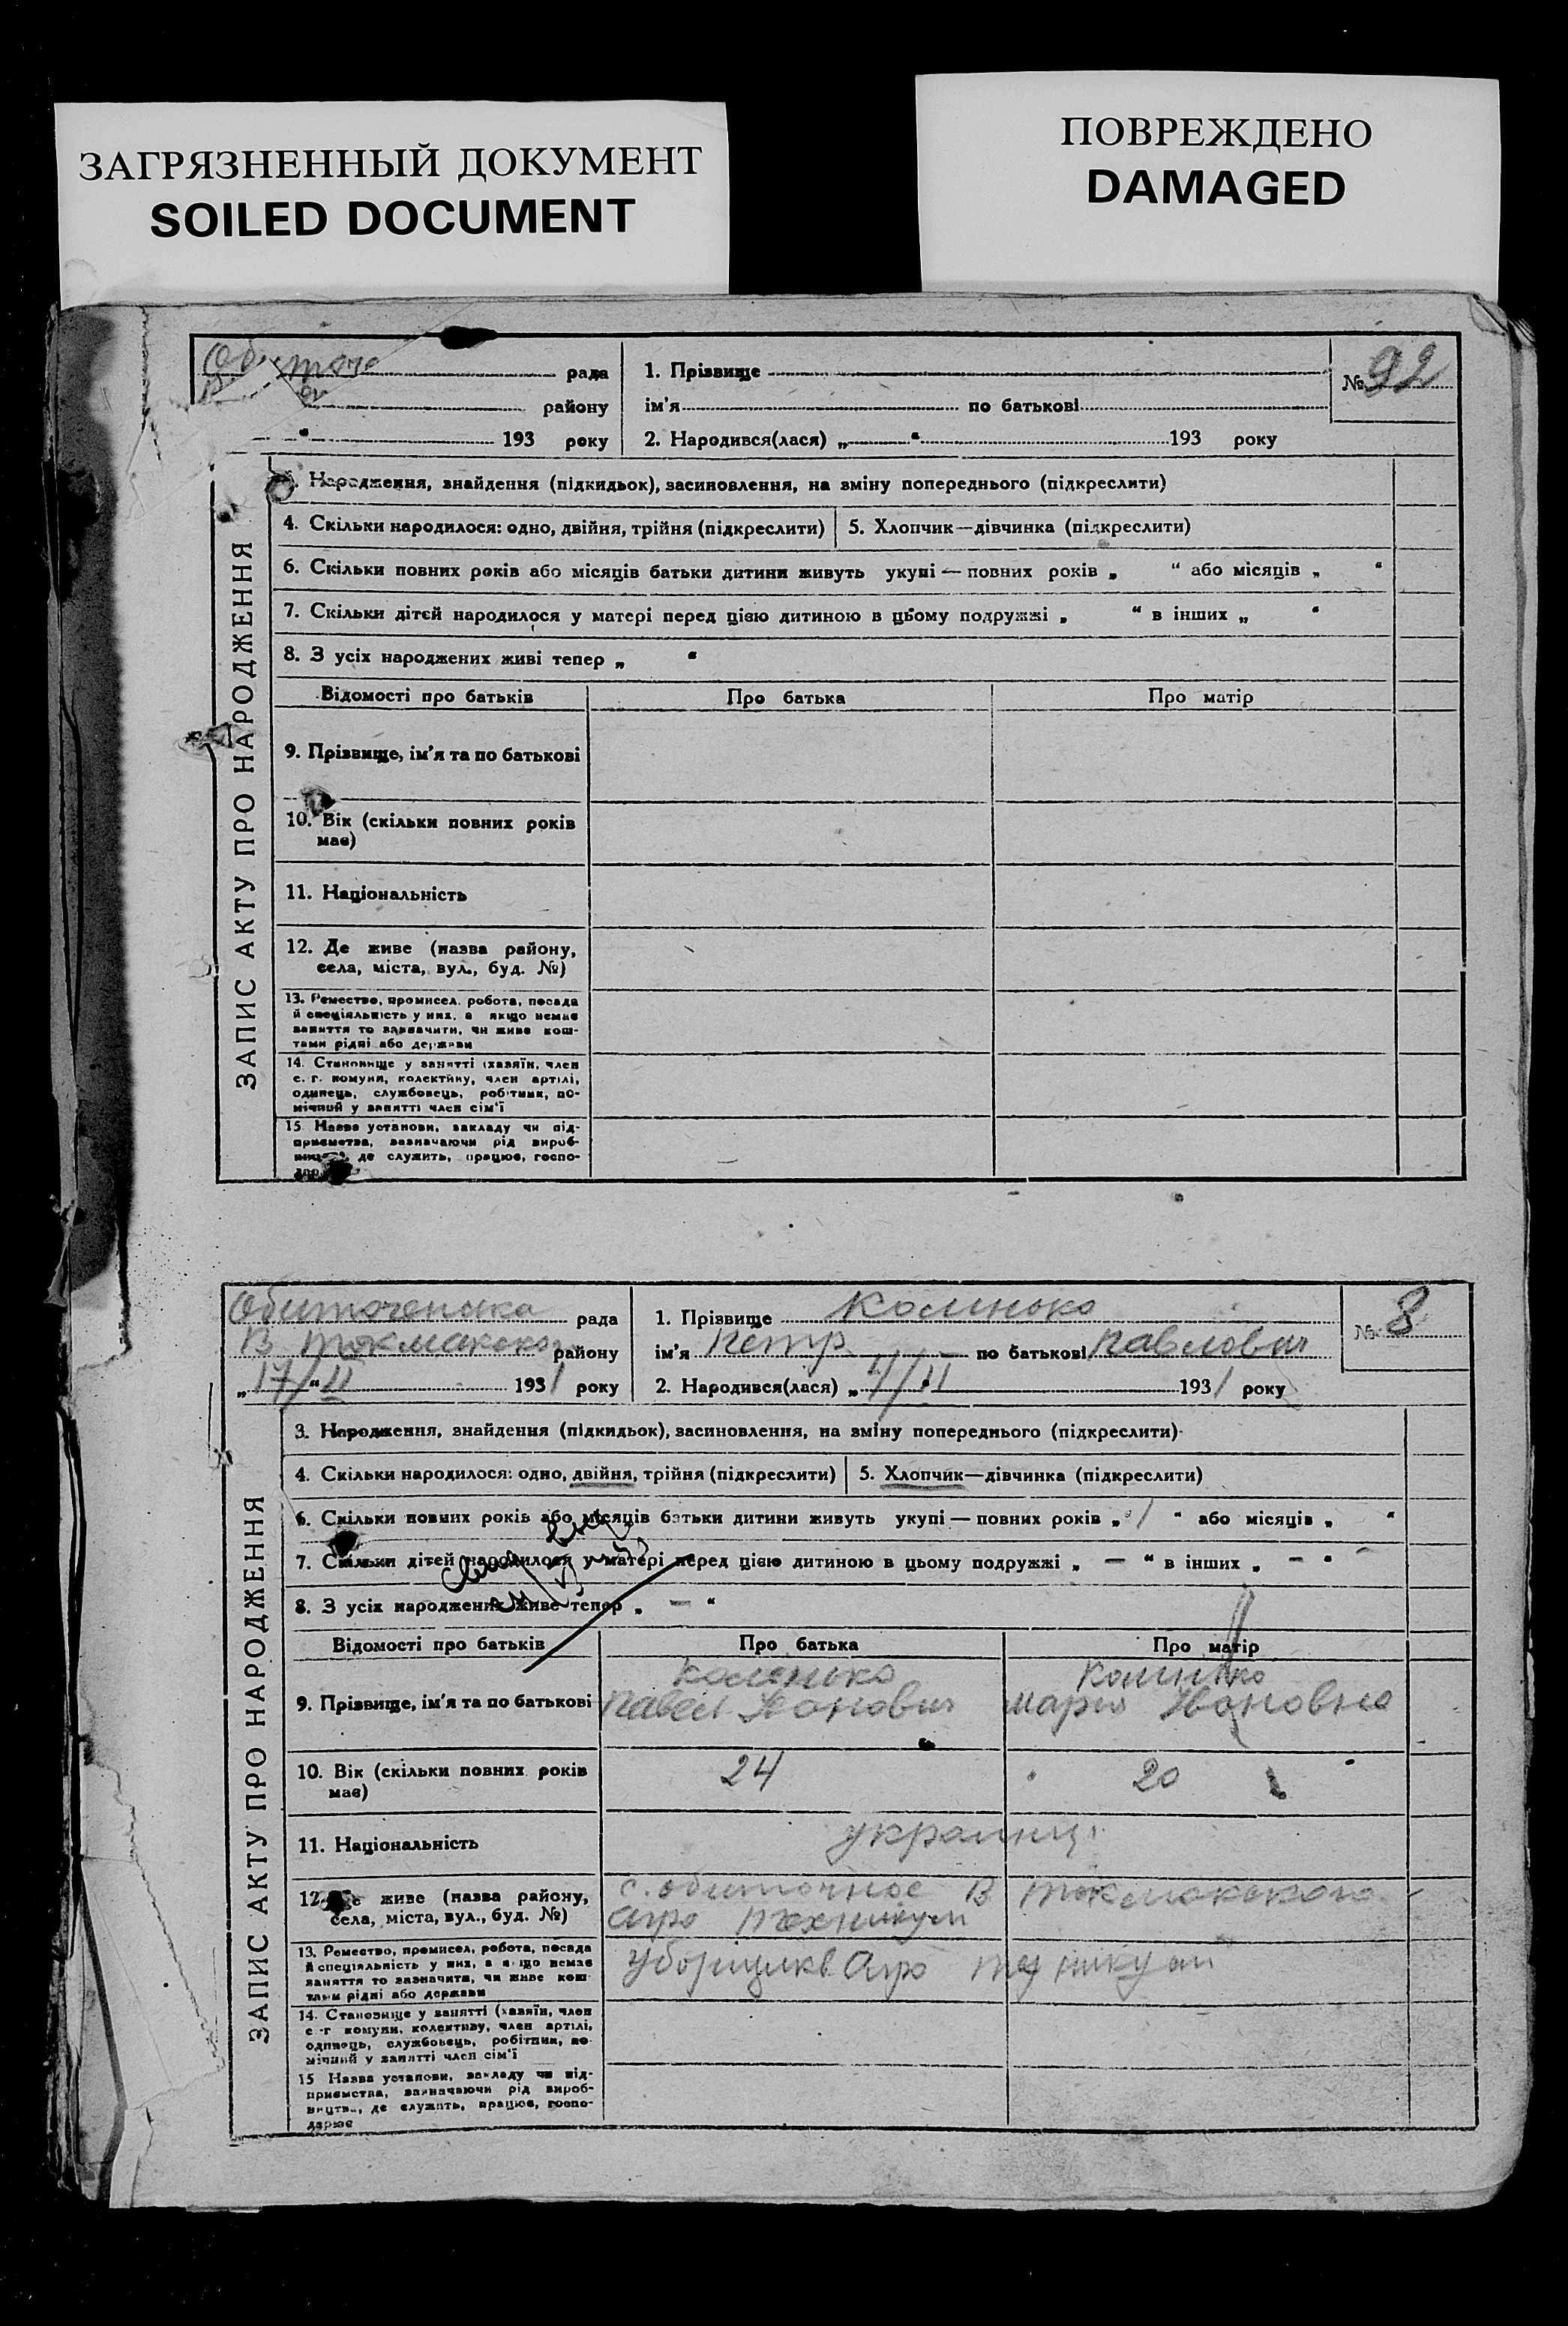 ЗАГРЯЗНЕННЫЙ ДОКУМЕНТ
SOILED DOCUMENT
ПОВРЕЖДЕНО
DAMAGED
рада
району
193 року
1. Прізвище
ім'я по батькові
2. Народився(лася) „ “ 193 року
№ 92
ЗАПИС АКТУ ПРО НАРОДЖЕННЯ
3. Народження, знайдення (підкидьок), засиновлення, на зміну попереднього (підкреслити)
4. Скільки народилося: одно, двійня, трійня (підкреслити)
5. Хлопчик—дівчинка (підкреслити)
6. Скільки повних років або місяців батьки дитини живуть укупі — повних років „ “ або місяців „ “
7. Скільки дітей народилося у матері перед цією дитиною в цьому подружжі „ “ в інших „ “
8. З усіх народжених живі тепер „ “
Відомості про батьків
Про батька
Про матір
9. Прізвище, ім'я та по батькові
10. Вік (скільки повних років
має)
11. Національність
12. Де живе (назва району,
села, міста, вул., буд. №)
13. Ремество, промисел, робота, посада
й спеціяльність у них, а якщо немає
заняття то зазначити, чи живе кош-
тами рідні або держави
14. Становище у занятті (хазяїн, член
с. г. комуни, колективу, член артілі,
одинець, службовець, робітник, по-
мічний у занятті член сім'ї
15 Назва установи, закладу чи під-
приємства, зазначаючи рід вироб-
де служить, працює, госпо-
Обиточенська рада
В Токмакско району
„17/“II 1931 року
1. Прізвище Колинько
ім'я Петр по батькові Павлович
2. Народився(лася) „ 4/II 1931 року
№ 8
ЗАПИС АКТУ ПРО НАРОДЖЕННЯ
3. Народження, знайдення (підкидьок), засиновлення, на зміну попереднього (підкреслити)
4. Скільки народилося: одно, двійня, трійня (підкреслити)
5. Хлопчик—дівчинка (підкреслити)
6. Скільки повних років або місяців батьки дитини живуть укупі — повних років „ 1 “ або місяців „ “
7. Скільки дітей народилося у матері перед цією дитиною в цьому подружжі „ — “ в інших „ — “
8. З усіх народжених живе тепер „ — “
Відомості про батьків
Про батька
Про матір
9. Прізвище, ім'я та по батькові
Коленько
Павел Иванович
Колинько
Мария Ивановна
10. Вік (скільки повних років
має)
24
20
11. Національність
украинці
12. Де живе (назва району,
села, міста, вул., буд. №)
с. обиточное В Токмакского
Агро Техникум
13. Ремество, промисел, робота, посада
й спеціяльність у них, а якщо немає
заняття то зазначити, чи живе кош-
тами рідні або держави
Агро
14. Становище у занятті (хазяїн, член
с.-г комуни, колективу, член артілі,
одинець, службовець, робітник, по-
мічний у занятті член сім'ї
15 Назва установи, закладу чи під-
приємства, зазначаючи рід вироб-
ництва, де служить, працює, госпо-
дарює